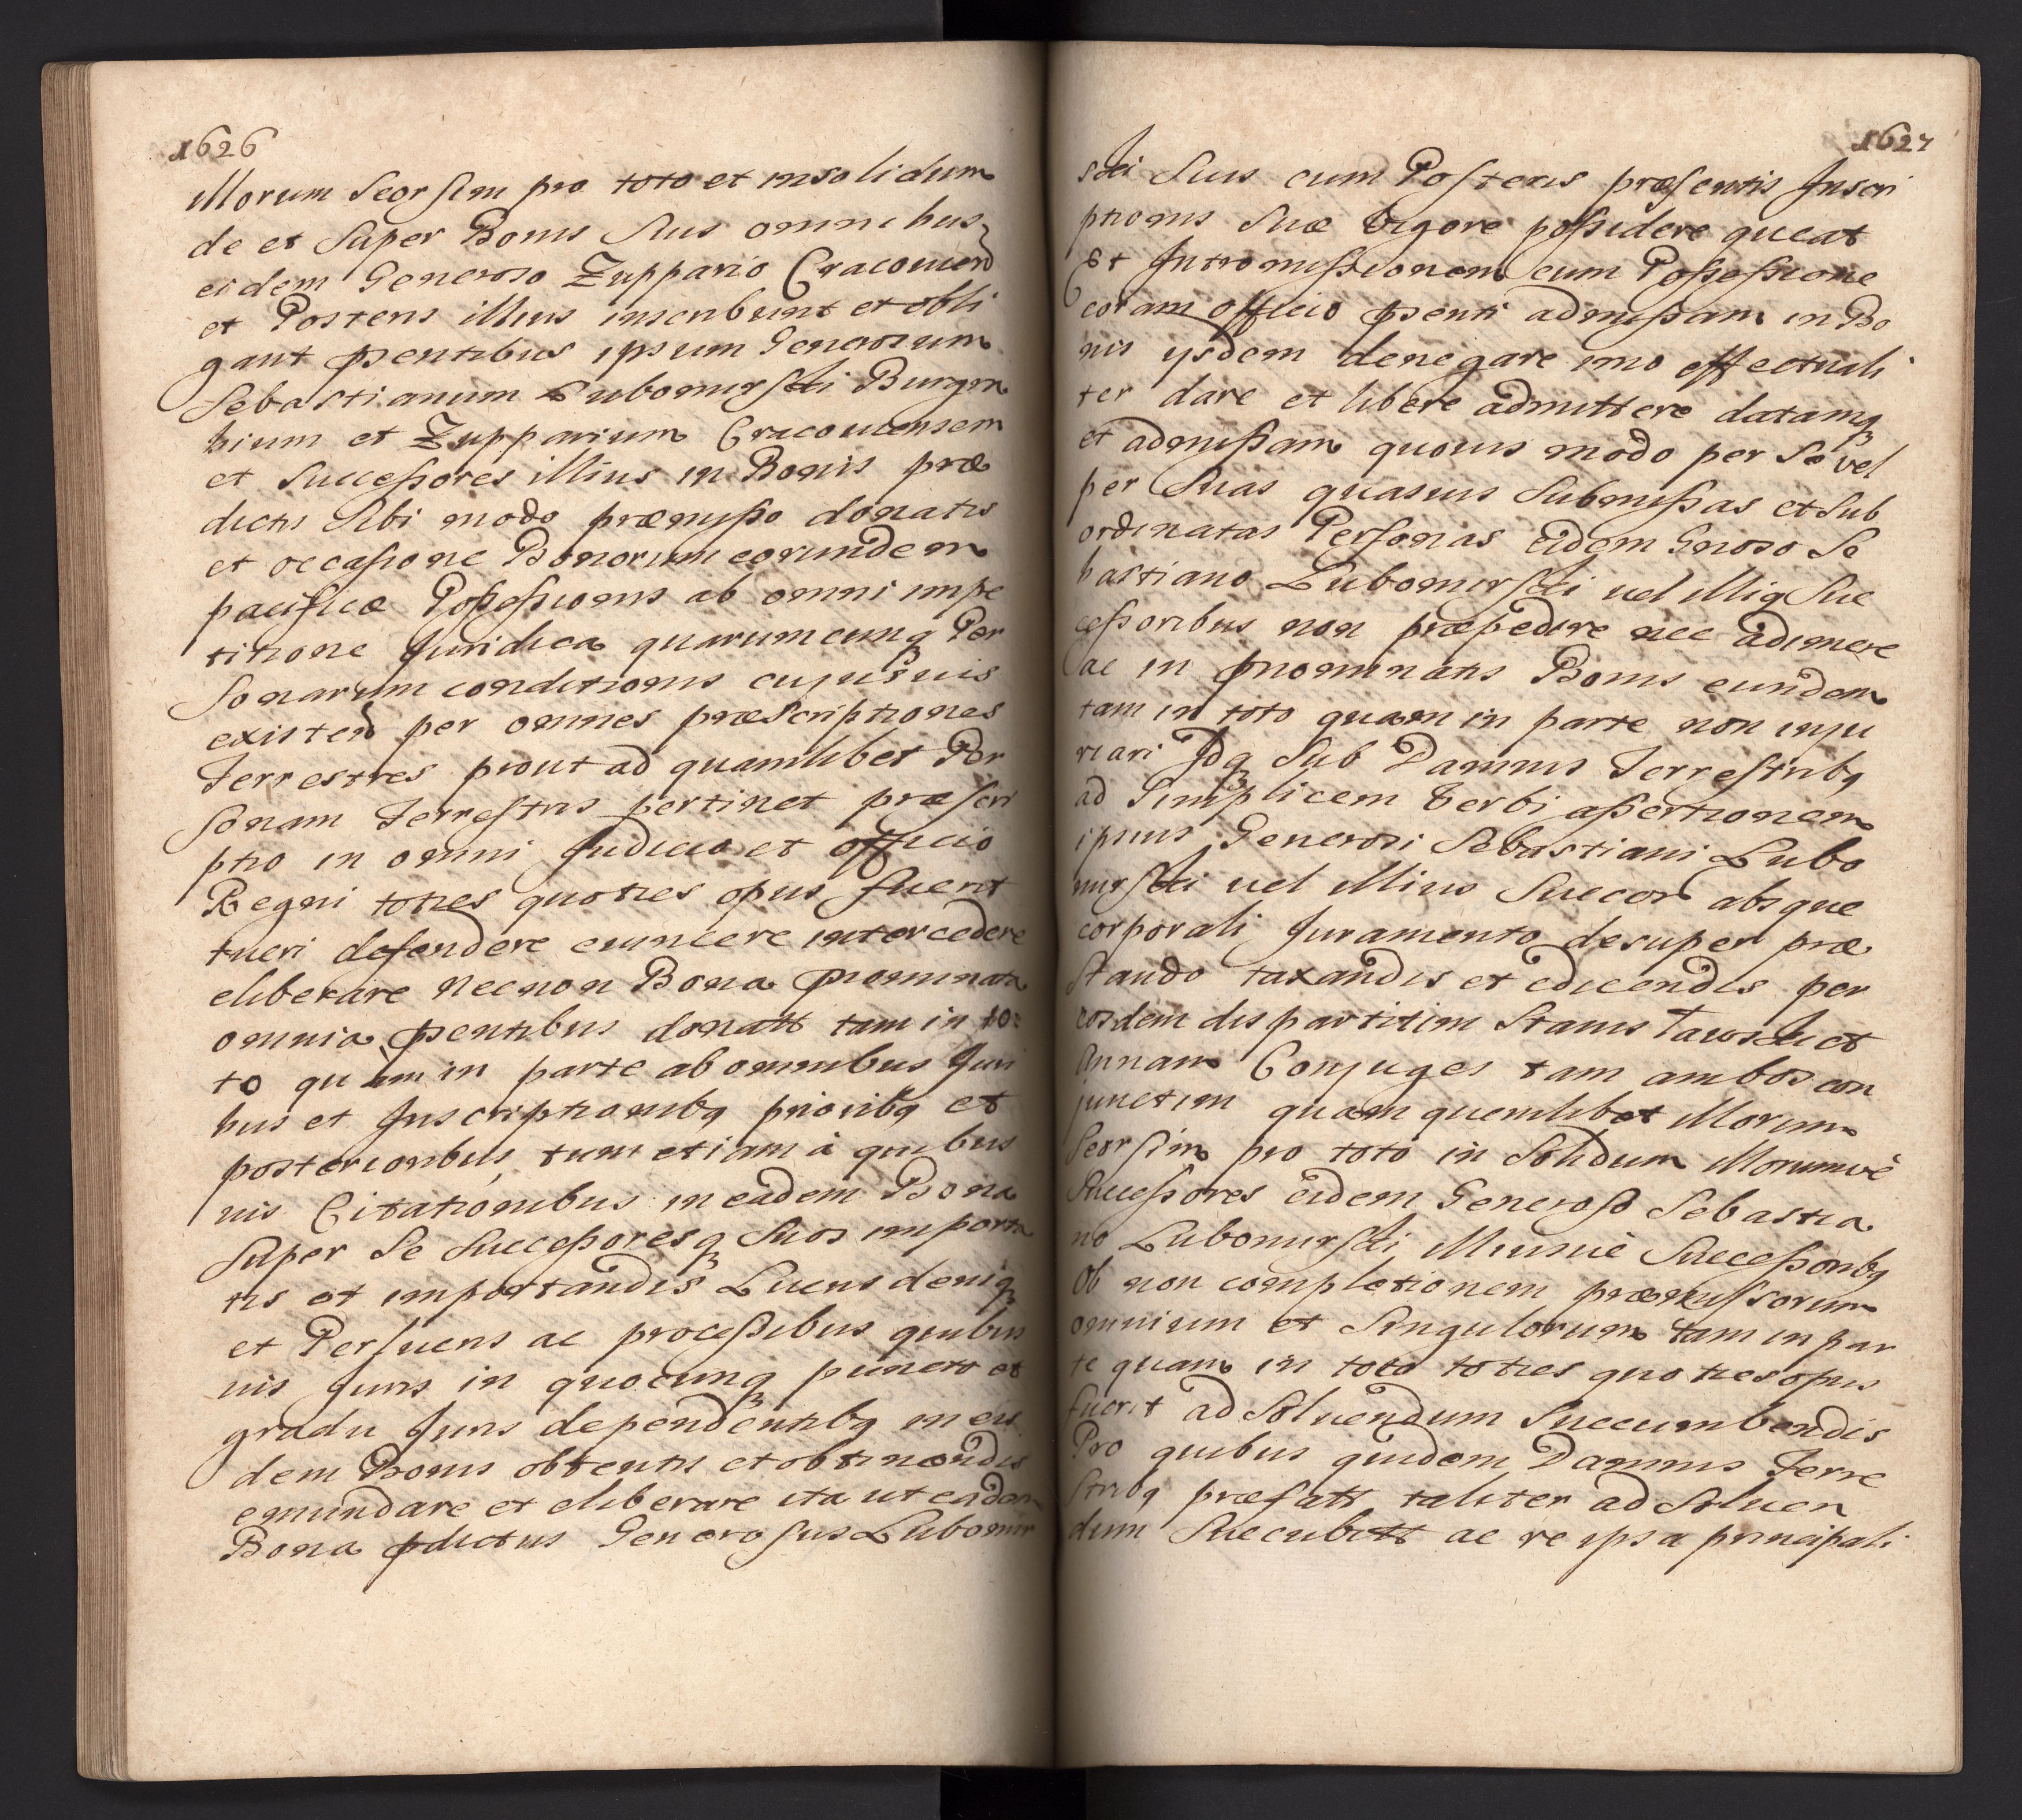 1626
illorum seorsim pro toto et insolidum
de et super Bonis suis omnibus
eidem Generoso Zuppario Cracovien
et Posteris illius inscribunt et obli
gant psentibus ipsum Generosum
Sebastianum Lubomirski Burgra
bium et Zupparium Cracoviensem
et successores illius in Bonis præ
dictis sibi modo præmisso donatis
et occasione Bonorum eorundem
pacificæ Possessionis ab omni impe
titione Juridica quarumcunq Per
sonarum conditionis cujusvis
existen per omnes præscriptiones
Terrestres prout ad quamlibet Per
sonam Terrestris pertinet præscri
ptio in omni Judicio et officio
Regni toties quoties opus fuerit
tueri defendere evincere intercedere
eliberare necnon Bona pnominata
omnia psentibus donatt tam in to
to quam in parte ab omnibus Juri
bus et Inscriptionibq prioribq et
posterioribus, tum etiam à quibus
vis Citationibus in eadem Bona
super se successoresq suos importa
tis et importandis Lucris deniq
et Perlucris ac processibus quibus
vis Juris in quocunq puncto et
gradu Juris dependentibq in eis
dem Bonis obtentis et obtinendis
emundare et eliberare ita ut eadem
Bona pdictus Generosus Lubomir
1627
ski suis cum Posteris præsentis Inscri
ptionis suæ vigore possidere queat
Et Intromissionem cum Possessione
coram officio psenti admissam in Bo
nis ijsdem denegare imo effectuali
ter dare et libere admittere datamq
et admissam quovis modo per se vel
per suas quasvis submissas et sub
ordinatas Personas eidem Gnoso Se
bastiano Lubomirski vel illiq suc
cessoribus non præpedire nec adimere
ac in pnominatis Bonis eundem
tam in toto quam in parte non inju
riari Idq sub Damnis Terrestribq
ad simplicem verbi assertionem
ipsius Generosi Sebastiani Lubo
mirski vel illius succor absque
corporali Juramento desuper præ
stando taxandis et edicendis per
eosdem dispartitim Stanis Tawski et
Annam Conjuges tam ambos con
junctim quam quemlibet illorum
seorsim pro toto in solidum illorumvè
successores eidem Generoso Sebastia
no Lubomirski, illiusvè successoribq
Ob non completionem præmissorum
omnium et singulorum tam in par
te quam in toto toties quoties opus
fuerit ad solvendum succumbendis
Pro quibus quidem Damnis Terre
stribq præfatt taliter ad solven
dum succubitt ac re ipsa principali